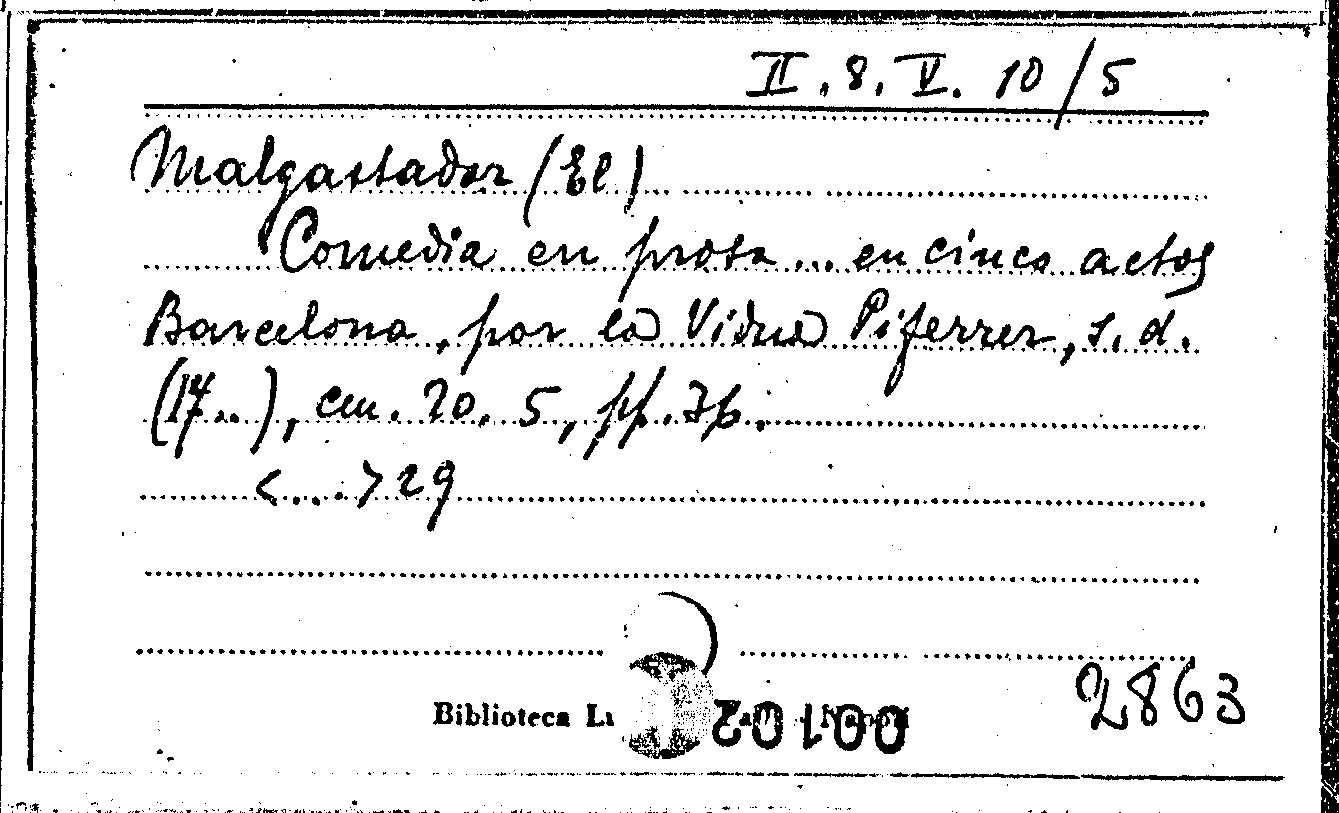 II.8.V. 10/5
Malgastador (El)
Comedia en prosa... en cinco actos
Barcelona, por la Viuda Piferrer, s. d.
(17..), cm. 20. 5, pp.
<...> 29
Biblioteca
2863